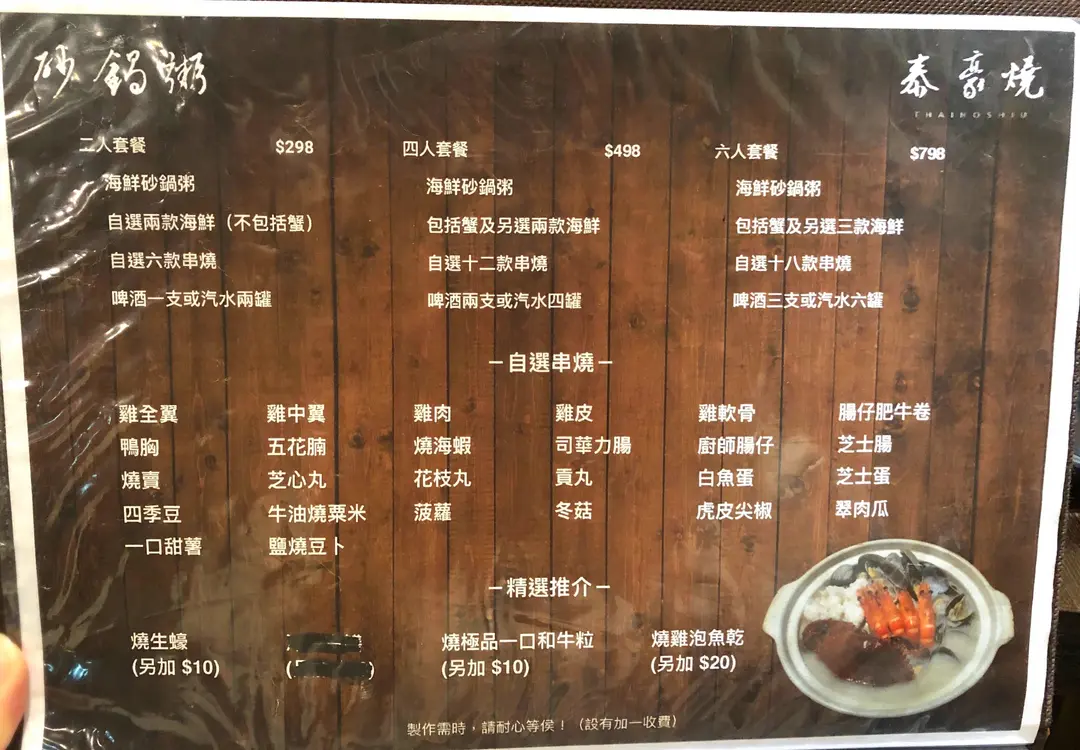 砂鍋粥
泰豪燒
THAIHOSHIU
二人套餐 $298
海鮮砂鍋粥
自選兩款海鮮（不包括蟹）
自選六款串燒
啤酒一支或汽水兩罐
四人套餐 $498
海鮮砂鍋粥
包括蟹及另選兩款海鮮
自選十二款串燒
啤酒兩支或汽水四罐
六人套餐 $798
海鮮砂鍋粥
包括蟹及另選三款海鮮
自選十八款串燒
啤酒三支或汽水六罐
－自選串燒－
雞全翼 雞中翼 雞肉 雞皮 雞軟骨 腸仔肥牛卷
鴨胸 五花腩 燒海蝦 司華力腸 廚師腸仔 芝士腸
燒賣 芝心丸 花枝丸 貢丸 白魚蛋 芝士蛋
四季豆 牛油燒粟米 菠蘿 冬菇 虎皮尖椒 翠肉瓜
一口甜薯 鹽燒豆卜
－精選推介－
燒生蠔 燒極品一口和牛粒 燒雞泡魚乾
(另加 $10) (另加 $10) (另加 $20)
製作需時，請耐心等侯！（設有加一收費）